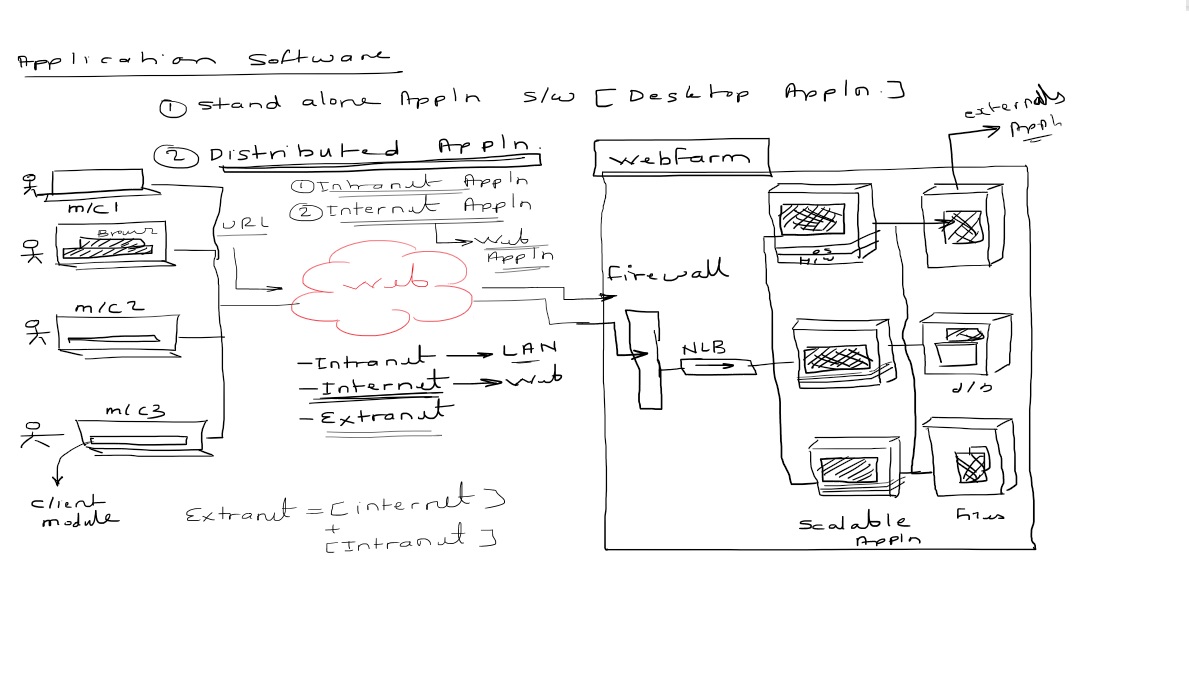 Application Software
① Stand alone Appln S/W [Desktop Appln.]
② Distributed Appln.
① Intranet Appln
② Internet Appln
Web
Appln
m/c1
Browser
URL
m/c2
m/c3
client
module
Web
- Intranet → LAN
- Internet → Web
- Extranet
Extranet = [internet]
+
[Intranet]
WebFarm
Firewall
NLB
OS
H/W
externals
Appln
d/b
Files
Scalable
Appln